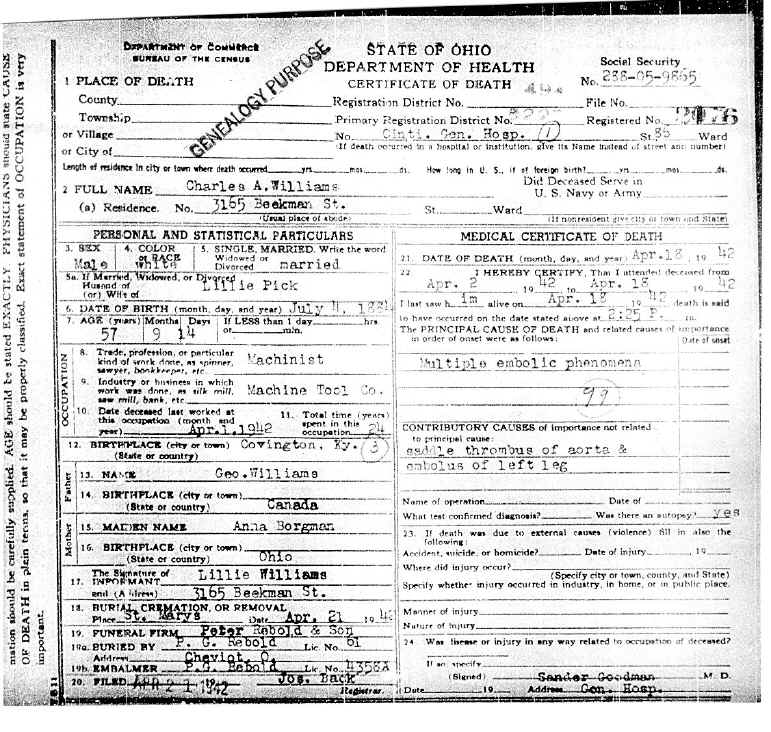 mation should be carefully supplied. AGE should be stated EXACTLY. PHYSICIANS should state CAUSE
OF DEATH in plain terms, so that it may be properly classified. Exact statement of OCCUPATION is very
important.
DEPARTMENT OF COMMERCE
BUREAU OF THE CENSUS
GENEALOGY PURPOSE
STATE OF OHIO
DEPARTMENT OF HEALTH
CERTIFICATE OF DEATH
Social Security
No. 288-05-9865
1 PLACE OF DEATH
County
Township
or Village
or City of
Registration District No.
File No.
Primary Registration District No.
Registered No.
No. Cinti. Gen. Hosp. (1) St. Ward
(If death occurred in a hospital or institution, give its Name instead of street and number)
Length of residence in city or town where death occurred yrs. mos. ds. How long in U. S., if of foreign birth? yrs. mos. ds.
2 FULL NAME Charles A. Williams
Did Deceased Serve in
U. S. Navy or Army
(a) Residence. No. 3165 Beekman St. St. Ward
(Usual place of abode)
(If nonresident give city or town and State)
PERSONAL AND STATISTICAL PARTICULARS
3. SEX Male
4. COLOR or RACE white
5. SINGLE, MARRIED, Write the word
Widowed or
Divorced married
5a. If Married, Widowed, or Divorced
Husband of
(or) Wife of Lillie Pick
6. DATE OF BIRTH (month, day, and year) July 4, 1884
7. AGE (years) Months Days If LESS than 1 day hrs
57 9 14 or min.
OCCUPATION
8. Trade, profession, or particular
kind of work done, as spinner,
sawyer, bookkeeper, etc. Machinist
9. Industry or business in which
work was done, as silk mill,
saw mill, bank, etc. Machine Tool Co.
10. Date deceased last worked at
this occupation (month and
year) Apr.1.1942
11. Total time (years)
spent in this
occupation 24
12. BIRTHPLACE (city or town) Covington, Ky. (3)
(State or country)
Father
13. NAME Geo. Williams
14. BIRTHPLACE (city or town)
(State or country) Canada
Mother
15. MAIDEN NAME Anna Borgman
16. BIRTHPLACE (city or town)
(State or country) Ohio
17. The Signature of
INFORMANT Lillie Williams
and (Address) 3165 Beekman St.
18. BURIAL, CREMATION, OR REMOVAL
Place St. Marys Date Apr. 21 19 42
19. FUNERAL FIRM Peter Rebold & Son
19a. BURIED BY P. G. Rebold Lic. No. 61
Address Cheviot, O.
19b. EMBALMER P.G. Rebold Lic. No. 4358A
20. FILED APR 21 1942 Jos. Back
Registrar.
MEDICAL CERTIFICATE OF DEATH
21. DATE OF DEATH (month, day, and year) Apr.18, 19 42
22 I HEREBY CERTIFY, That I attended deceased from
Apr. 2 19 42 to Apr. 18 19 42
I last saw h im alive on Apr. 18 19 42 death is said
to have occurred on the date stated above at 2:25 P. m.
The PRINCIPAL CAUSE OF DEATH and related causes of importance
in order of onset were as follows: Date of onset
Multiple embolic phenomena
99
CONTRIBUTORY CAUSES of importance not related
to principal cause:
saddle thrombus of aorta &
embolus of left leg
Name of operation Date of
What test confirmed diagnosis? Was there an autopsy? yes
23. If death was due to external causes (violence) fill in also the
following:
Accident, suicide, or homicide? Date of injury 19
Where did injury occur?
(Specify city or town, county, and State)
Specify whether injury occurred in industry, in home, or in public place.
Manner of injury
Nature of injury
24. Was disease or injury in any way related to occupation of deceased?
If so, specify
(Signed) Sander Goodman M. D.
Date 19 Address Gen. Hosp.